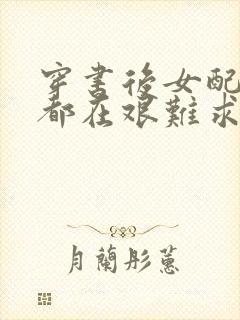 穿書後女配
都在艰難求
月蘭彤蕙